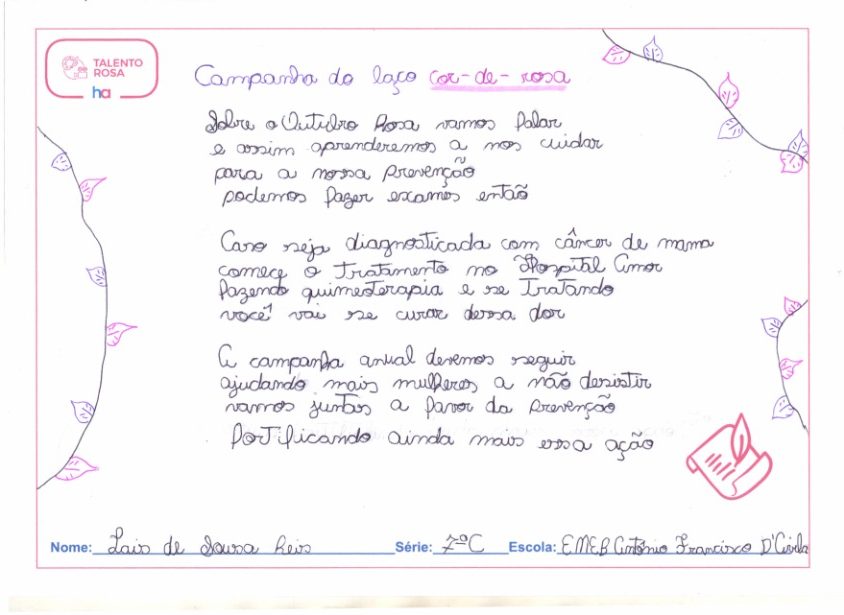 TALENTO
ROSA
ha
Campanha do laço cor-de-rosa
Sobre o Outubro Rosa vamos falar
e assim aprenderemos a nos cuidar
para a nossa prevenção
podemos fazer exames então
Caso seja diagnosticada com câncer de mama
começe o tratamento no Hospital Amor
fazendo quimeoterapia e se tratando
você vai se curar dessa dor
A campanha anual devemos seguir
ajudando mais mulheres a não desistir
vamos juntas a favor da prevenção
fortificando ainda mais essa ação
Nome: Lais de Sousa Reis Série: 7ºC Escola: EMEB Antônio Francisco